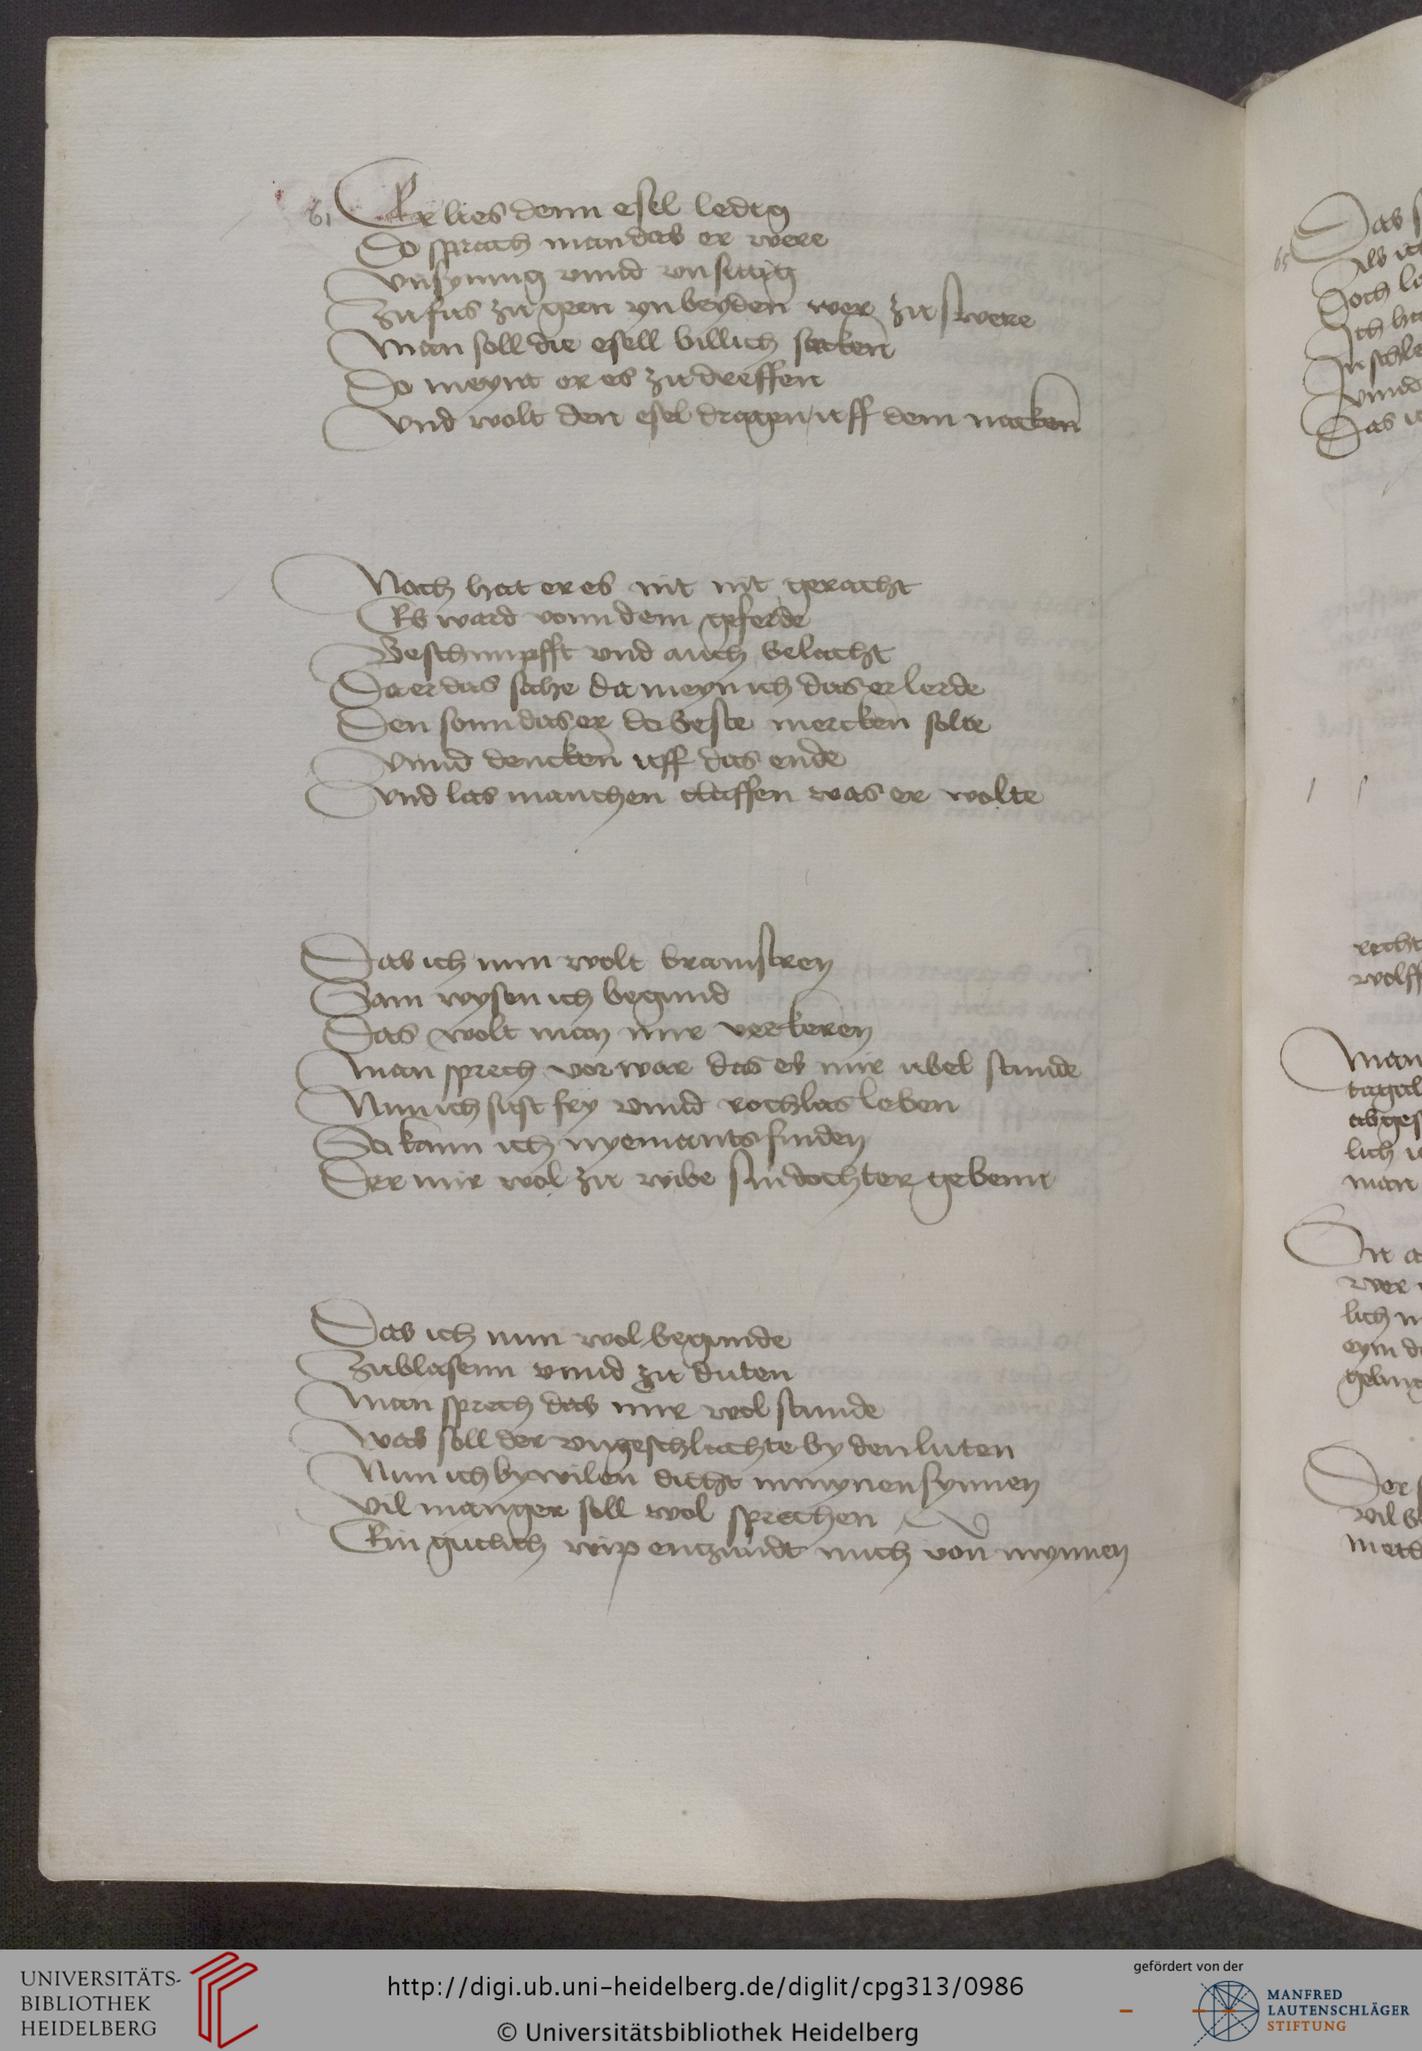 61 Er lies denn esel ledig
Do sprach man das er were
Vnsynnig vnnd vnsittig
Zu fus zu geen yn beyden wer zu swere
Man soll die esell billich secken
Do meynt er es zu dreffen
Vnd wolt den esel dragen uff dem necken
Noch hat er es nit nit geracht
Es ward vonn dem geferde
Beschimpfft vnd auch belacht
Da er das sahe da meyn ich das er lerde
Den sonn das er do beste mercken solte
Vnnd dencken uff das ende
Vnd las manchen claffen was er wolte
Das ich nun wolt
Sam wysen ich begund
Das wolt man mir verkeren
Man sprech vor war das es mir ubel stunde
Nun ich sust fry vnnd rochlas leben
So kann ich nyemants finden
Der mir wol zu wibe sin dochter gebenn
Das ich nun wol begunde
Zu blasenn vnnd zu duten
Man sprech das mir wol stunde
Was soll der vngeschlachte by den luten
Nun ich bywilen dicht in mynen synnen
Vil manger soll wol sprechen
Ein gutlich wip enzundt mich von mynnen
65 Das
Als ich
Doch
Ich
Vnnd
Das
recht
wolff
Man
lich
man
wer
lich
eym
Der
vil
UNIVERSITÄTS-
BIBLIOTHEK
HEIDELBERG
http://digi.ub.uni-heidelberg.de/diglit/cpg313/0986
© Universitätsbibliothek Heidelberg
gefördert von der
MANFRED
LAUTENSCHLÄGER
STIFTUNG